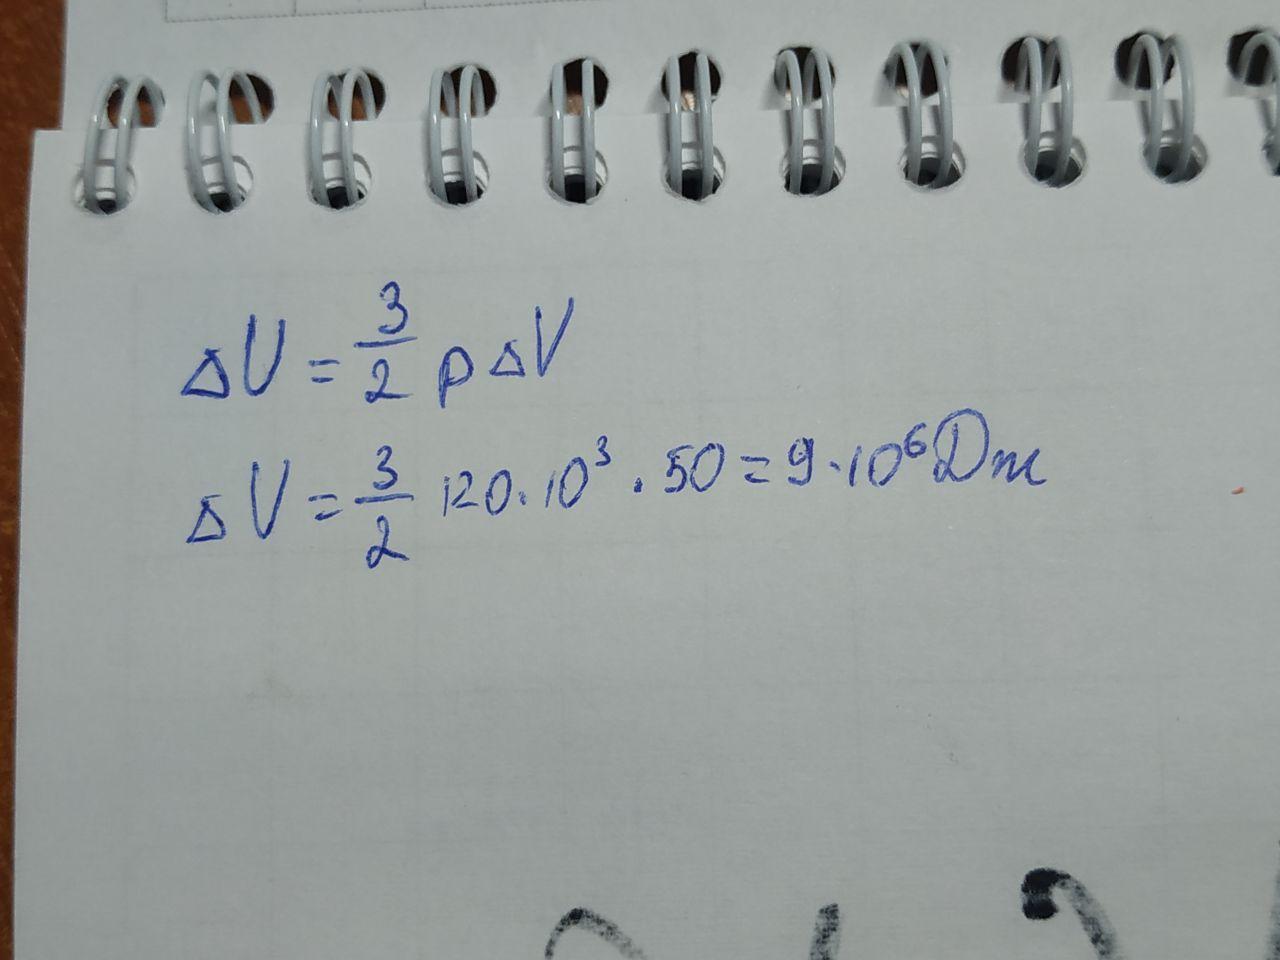 ΔU = 3/2 p ΔV
ΔV = 3/2 120 · 10³ · 50 = 9 · 10⁶ Дж